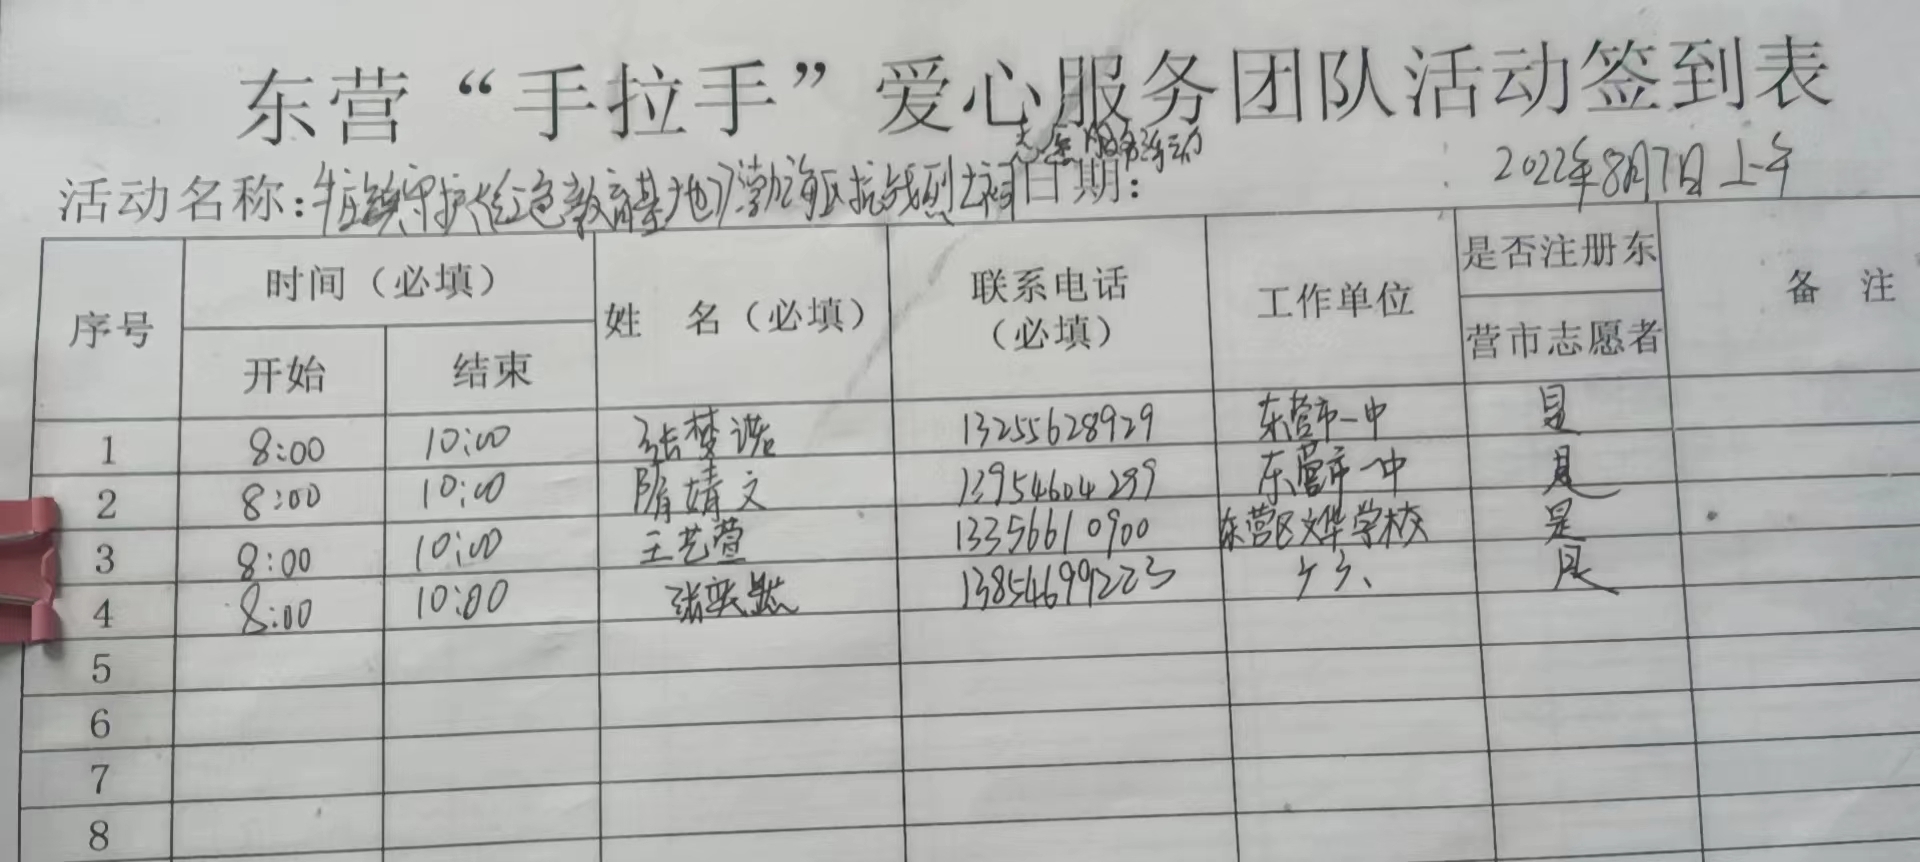 东营“手拉手”爱心服务团队活动签到表
志愿服务活动
活动名称:牛庄镇守护红色教育基地渤海区抗战烈士祠 日期: 2022年8月7日上午
序号 时间（必填） 姓 名（必填） 联系电话（必填） 工作单位 是否注册东营市志愿者 备 注
开始 结束
1 8:00 10:00 张梦诺 13255628929 东营市一中 是
2 8:00 10:00 隋婧文 13954604299 东营市一中 是
3 8:00 10:00 王艺萱 13356610900 东营区文华学校 是
4 8:00 10:00 张奕 13854699223 是
5
6
7
8